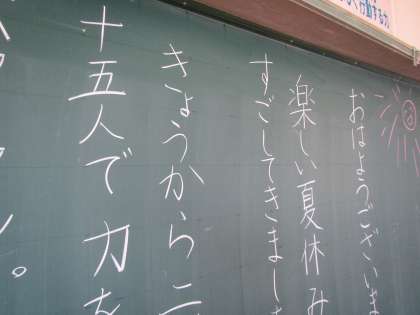 く行動する力
おはようございま
楽しい夏休み
すごしてきまし
きょうから二
十五人で 力を